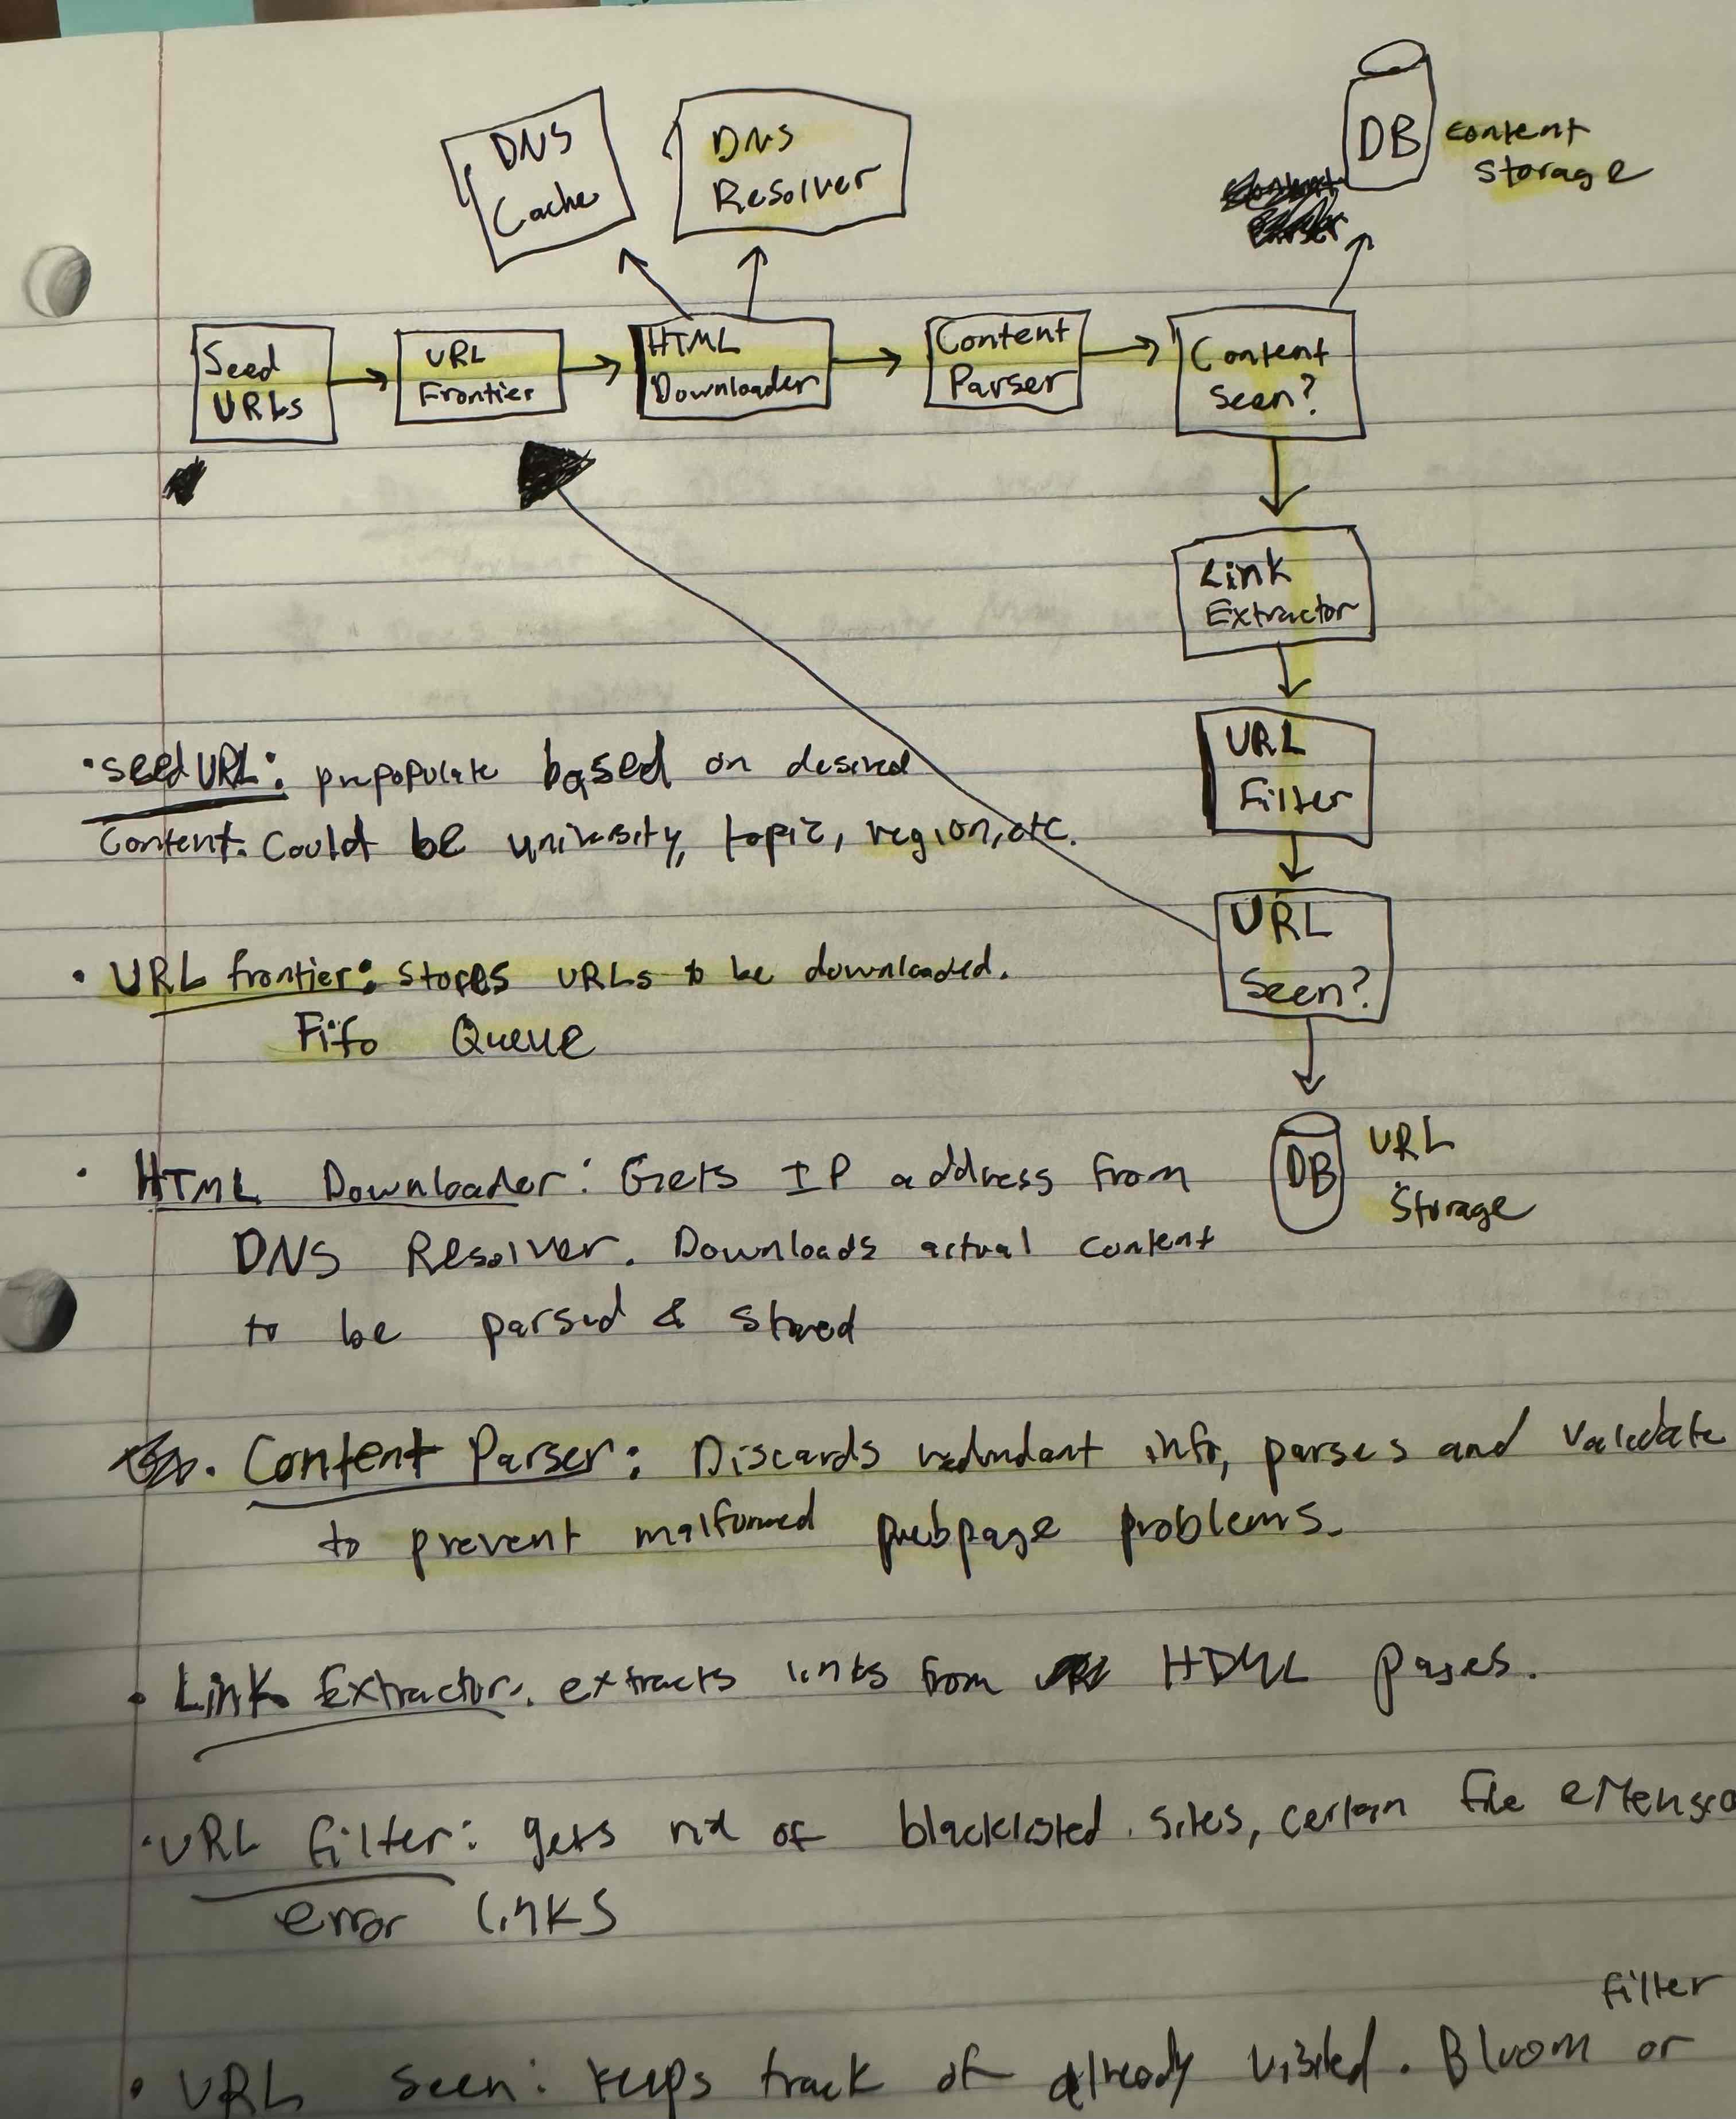 DNS
Cache
DNS
Resolver
DB
content
storage
Seed
URLs
URL
Frontier
HTML
Downloader
Content
Parser
Content
Seen?
Link
Extractor
URL
Filter
URL
Seen?
DB
URL
Storage
• seed URL: prepopulate based on desired
content. Could be university, topic, region, etc.
• URL frontier: stores URLs to be downloaded.
Fifo Queue
• HTML Downloader: Gets IP address from
DNS Resolver. Downloads actual content
to be parsed & stored
• Content Parser: Discards redundant info, parses and validate
to prevent malformed problems.
• Link Extractor: extracts links from pages.
• URL filter: gets rid of blacklisted sites, certain file extensio
error links
filter
• URL seen: keeps track of already visited. Bloom or